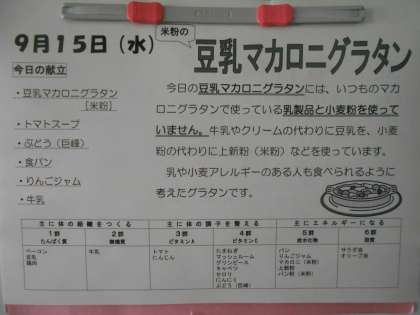 9月15日（水）
米粉の
豆乳マカロニグラタン
今日の献立
・豆乳マカロニグラタン
［米粉］
・トマトスープ
・ぶどう（巨峰）
・食パン
・りんごジャム
・牛乳
今日の豆乳マカロニグラタンには、いつものマカ
ロニグラタンで使っている乳製品と小麦粉を使って
いません。牛乳やクリームの代わりに豆乳を、小麦
粉の代わりに上新粉（米粉）などを使っています。
乳や小麦アレルギーのある人も食べられるように
考えたグラタンです。
主に体の組織をつくる
主に体の調子を整える
主にエネルギーになる
1群
たんぱく質
2群
無機質
3群
ビタミンA
4群
ビタミンC
5群
炭水化物
6群
脂質
ベーコン
豆乳
鶏肉
牛乳
トマト
にんじん
たまねぎ
マッシュルーム
グリンピース
キャベツ
セロリ
にんにく
ぶどう（巨峰）
パン
りんごジャム
マカロニ（米粉）
上新粉
パン粉（米粉）
サラダ油
オリーブ油